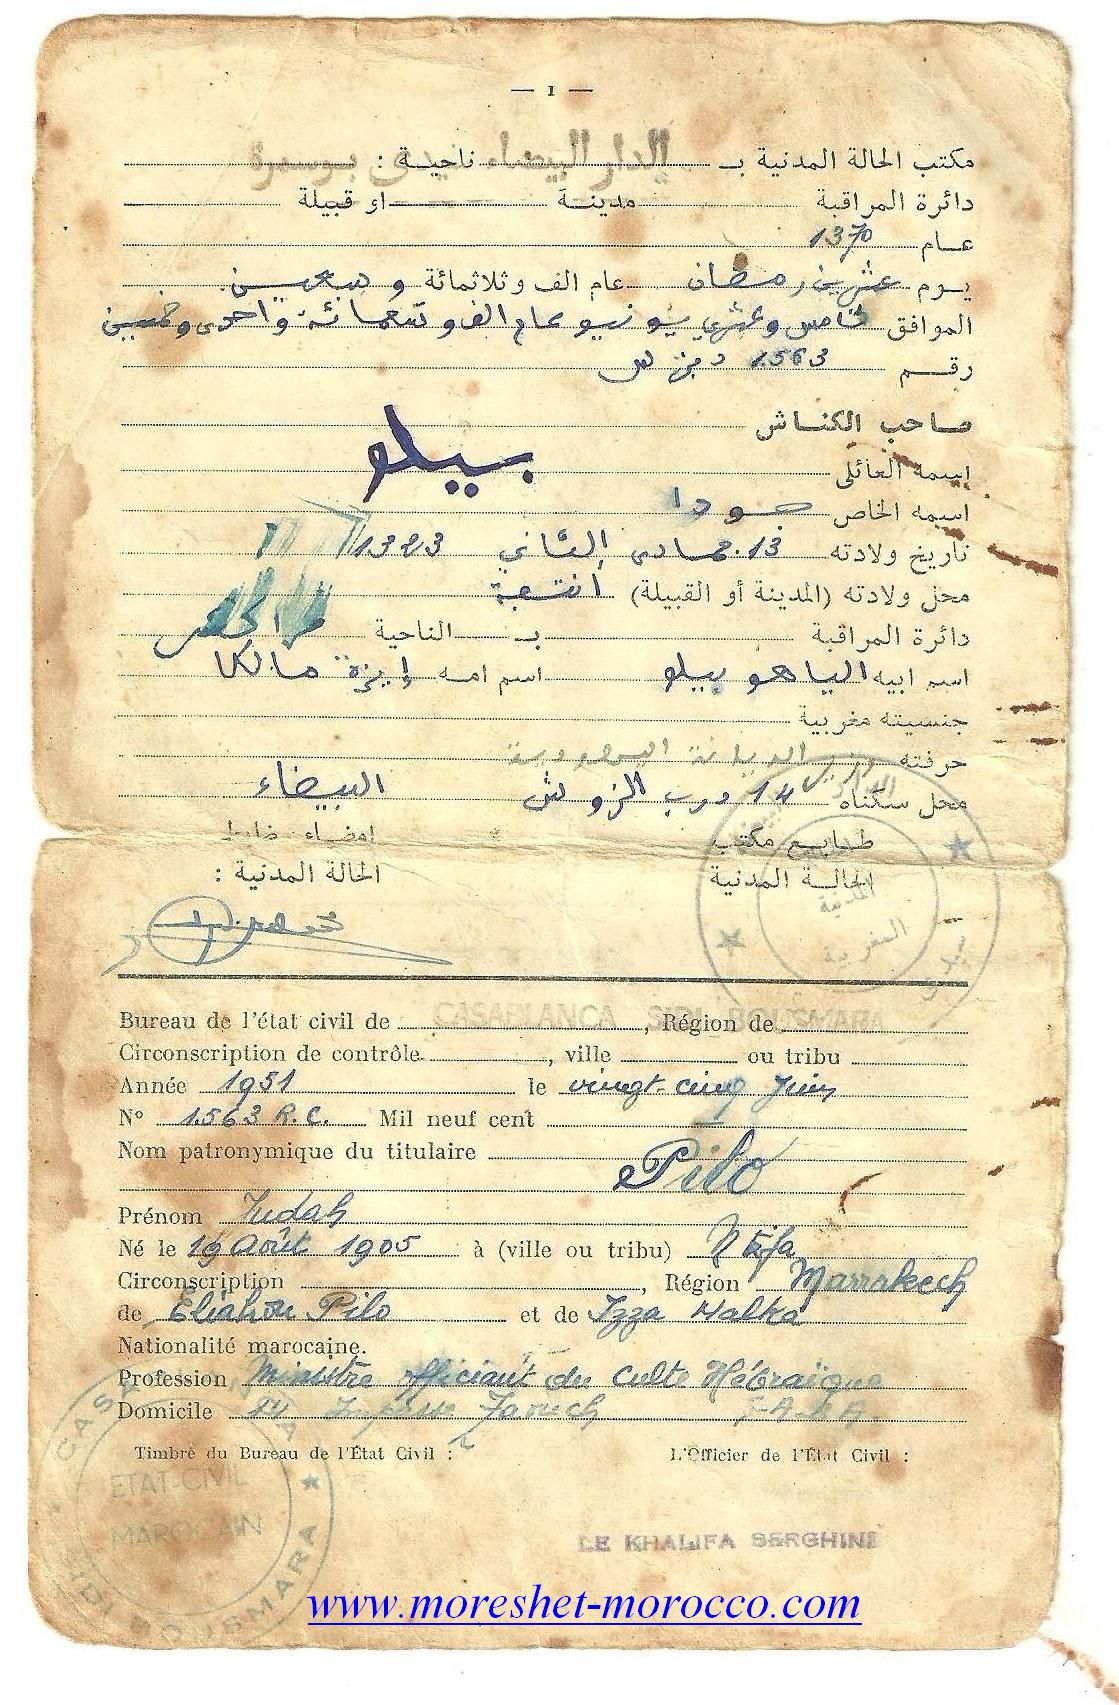 — 1 —
مكتب الحالة المدنية بـ الدار البيضاء ناحية : سيدي بوسمرة
دائرة المراقبة مدينة او قبيلة
عام 1370
يوم عشرين رمضان عام الف وثلاثمائة و سبعين
الموافق خامس وعشري يونيو عام الف و تسعمائة واحدى وخمسين
رقم 1.563
صاحب الكناش
إسمه العائلي بيلو
اسمه الخاص جودا
تاريخ ولادته 13 جمادى الثاني 1323
محل ولادته (المدينة أو القبيلة) أنتيفة
دائرة المراقبة بـ الناحية
اسم ابيه الياهو بيلو اسم امه إيزة مالكا
جنسيته مغربية
حرفته الديانة اليهودية
محل سكناه 14 درب الزوش البيضاء
طابع مكتب إمضاء ضابط
الحالة المدنية الحالة المدنية :
المدنية
المغربية
Bureau de l'état civil de CASABLANCA SIDI BOUSMARA, Région de
Circonscription de contrôle , ville ou tribu
Année 1951 le vingt-cinq Juin
N° 1.563 R.C. Mil neuf cent
Nom patronymique du titulaire
Pilo
Prénom Judah
Né le 19 Août 1905 à (ville ou tribu) Ntifa
Circonscription , Région Marrakech
de Eliahou Pilo et de Izza Malka
Nationalité marocaine.
Profession Ministre officiant du Culte Hébraïque
Domicile 14 Impasse
Timbre du Bureau de l'État Civil : L'Officier de l'État Civil :
CASABLANCA
ETAT-CIVIL
MAROCAIN
SIDI BOUSMARA
LE KHALIFA SERGHINI
www.moreshet-morocco.com